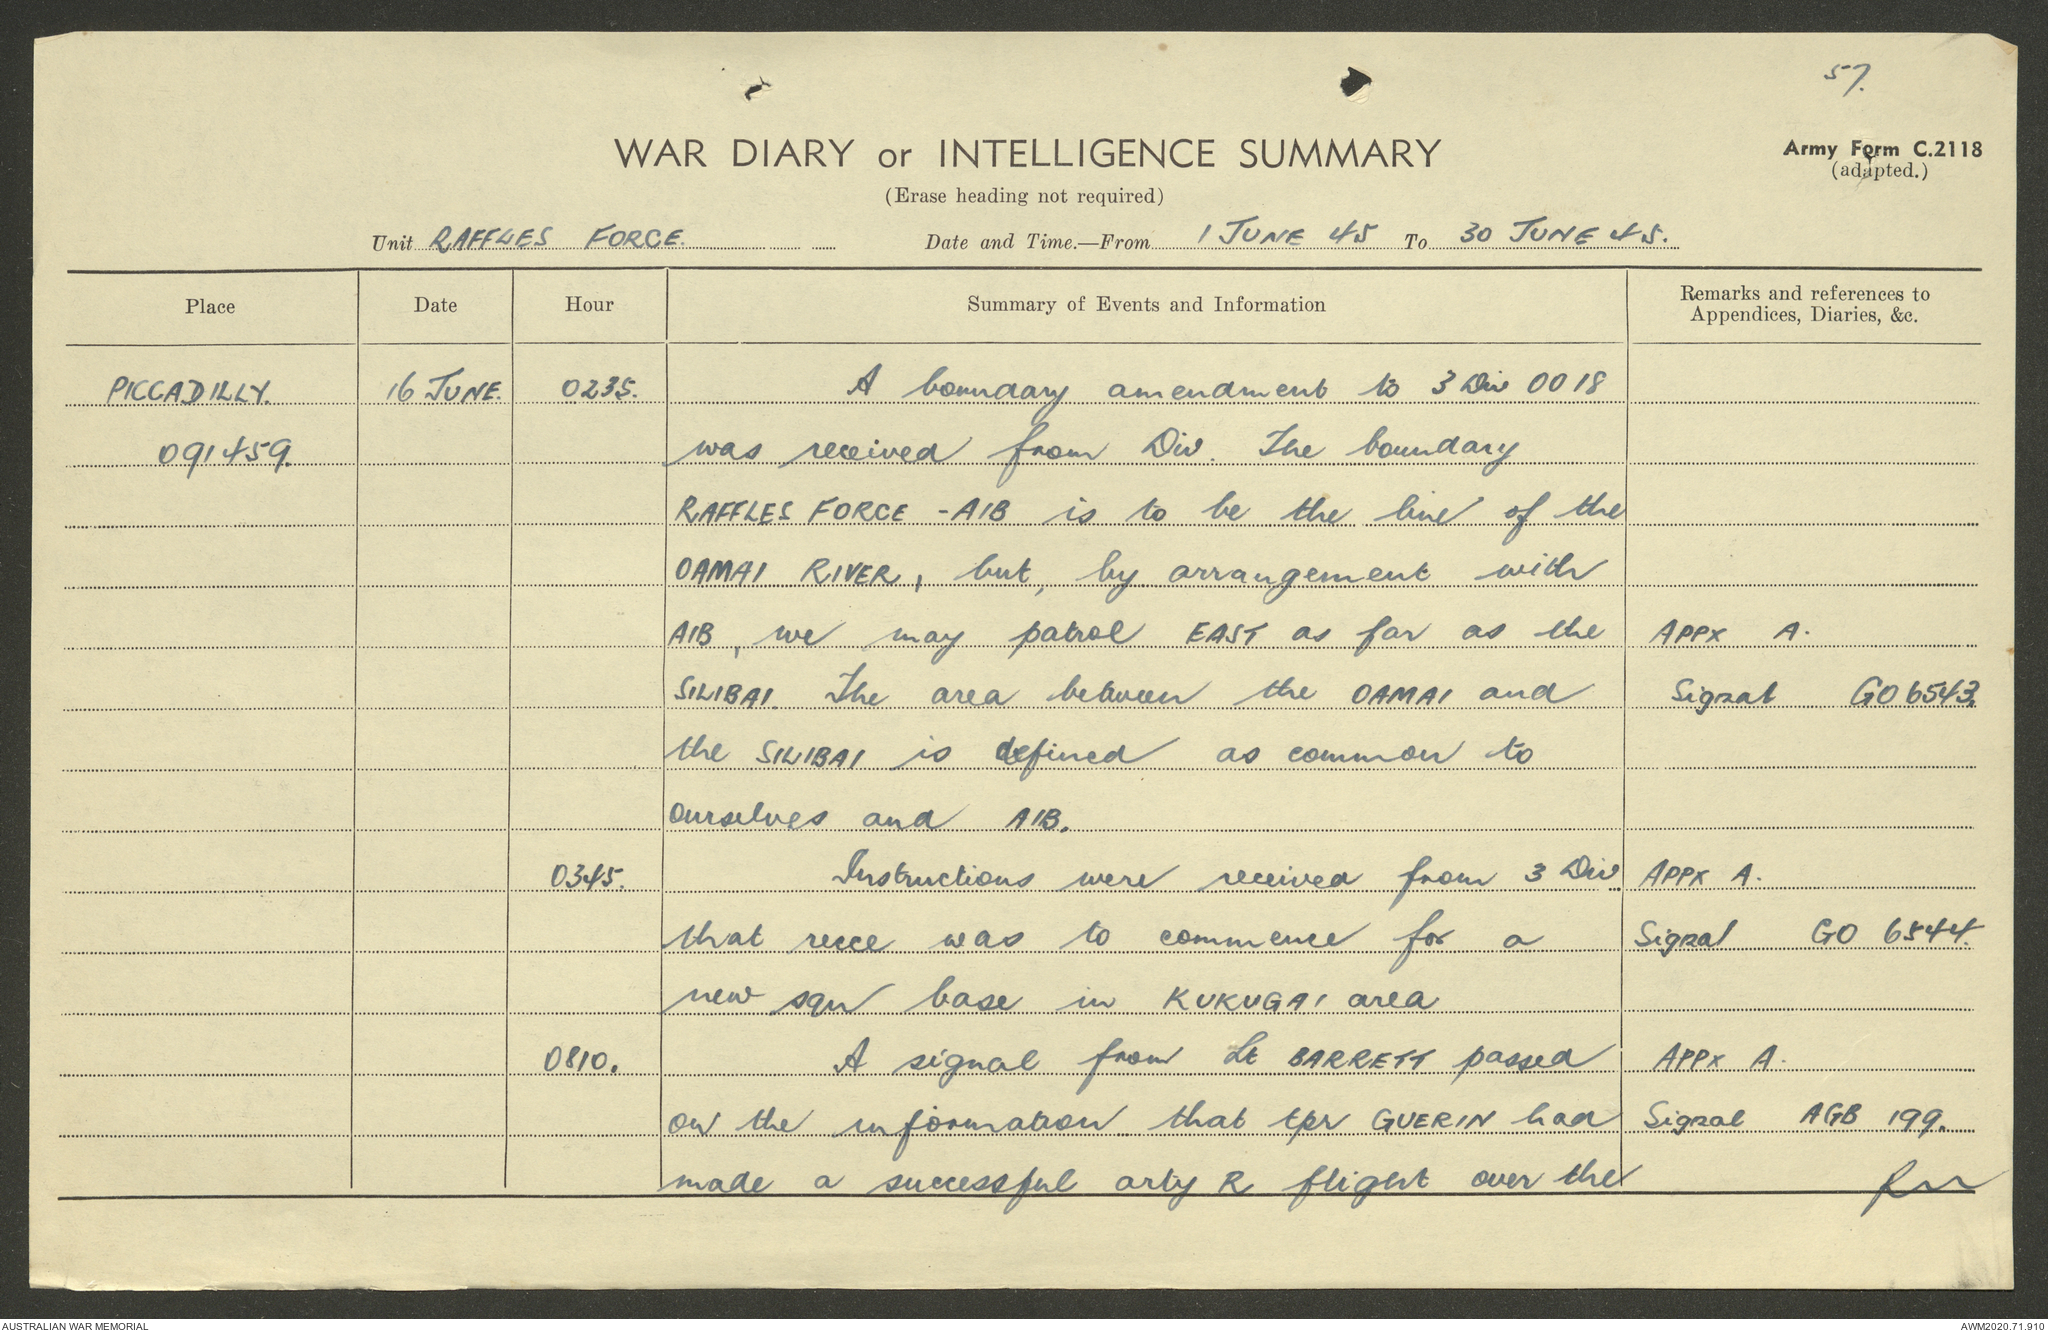 57.
WAR DIARY or INTELLIGENCE SUMMARY
Army Form C.2118
(adapted.)
(Erase heading not required)
Unit RAFFLES FORCE. Date and Time.—From 1 JUNE 45 To 30 JUNE 45.
Place Date Hour Summary of Events and Information Remarks and references to Appendices, Diaries, &c.
PICCADILLY. 16 JUNE. 0235. A boundary amendment to 3 Div OO 18
091459. was received from Div. The boundary
RAFFLES FORCE - AIB is to be the line of the
OAMAI RIVER, but, by arrangement with
AIB, we may patrol EAST as far as the APPX A.
SILIBAI. The area between the OAMAI and Signal GO 6543.
the SILIBAI is defined as common to
ourselves and AIB.
0345. Instructions were received from 3 Div APPX A.
that recce was to commence for a Signal GO 6544.
new sqn base in KUKUGAI area
0810. A signal from Lt BARRETT passed APPX A.
on the information that tpr GUERIN had Signal AGB 199.
made a successful arty R flight over the
AUSTRALIAN WAR MEMORIAL AWM2020.71.910